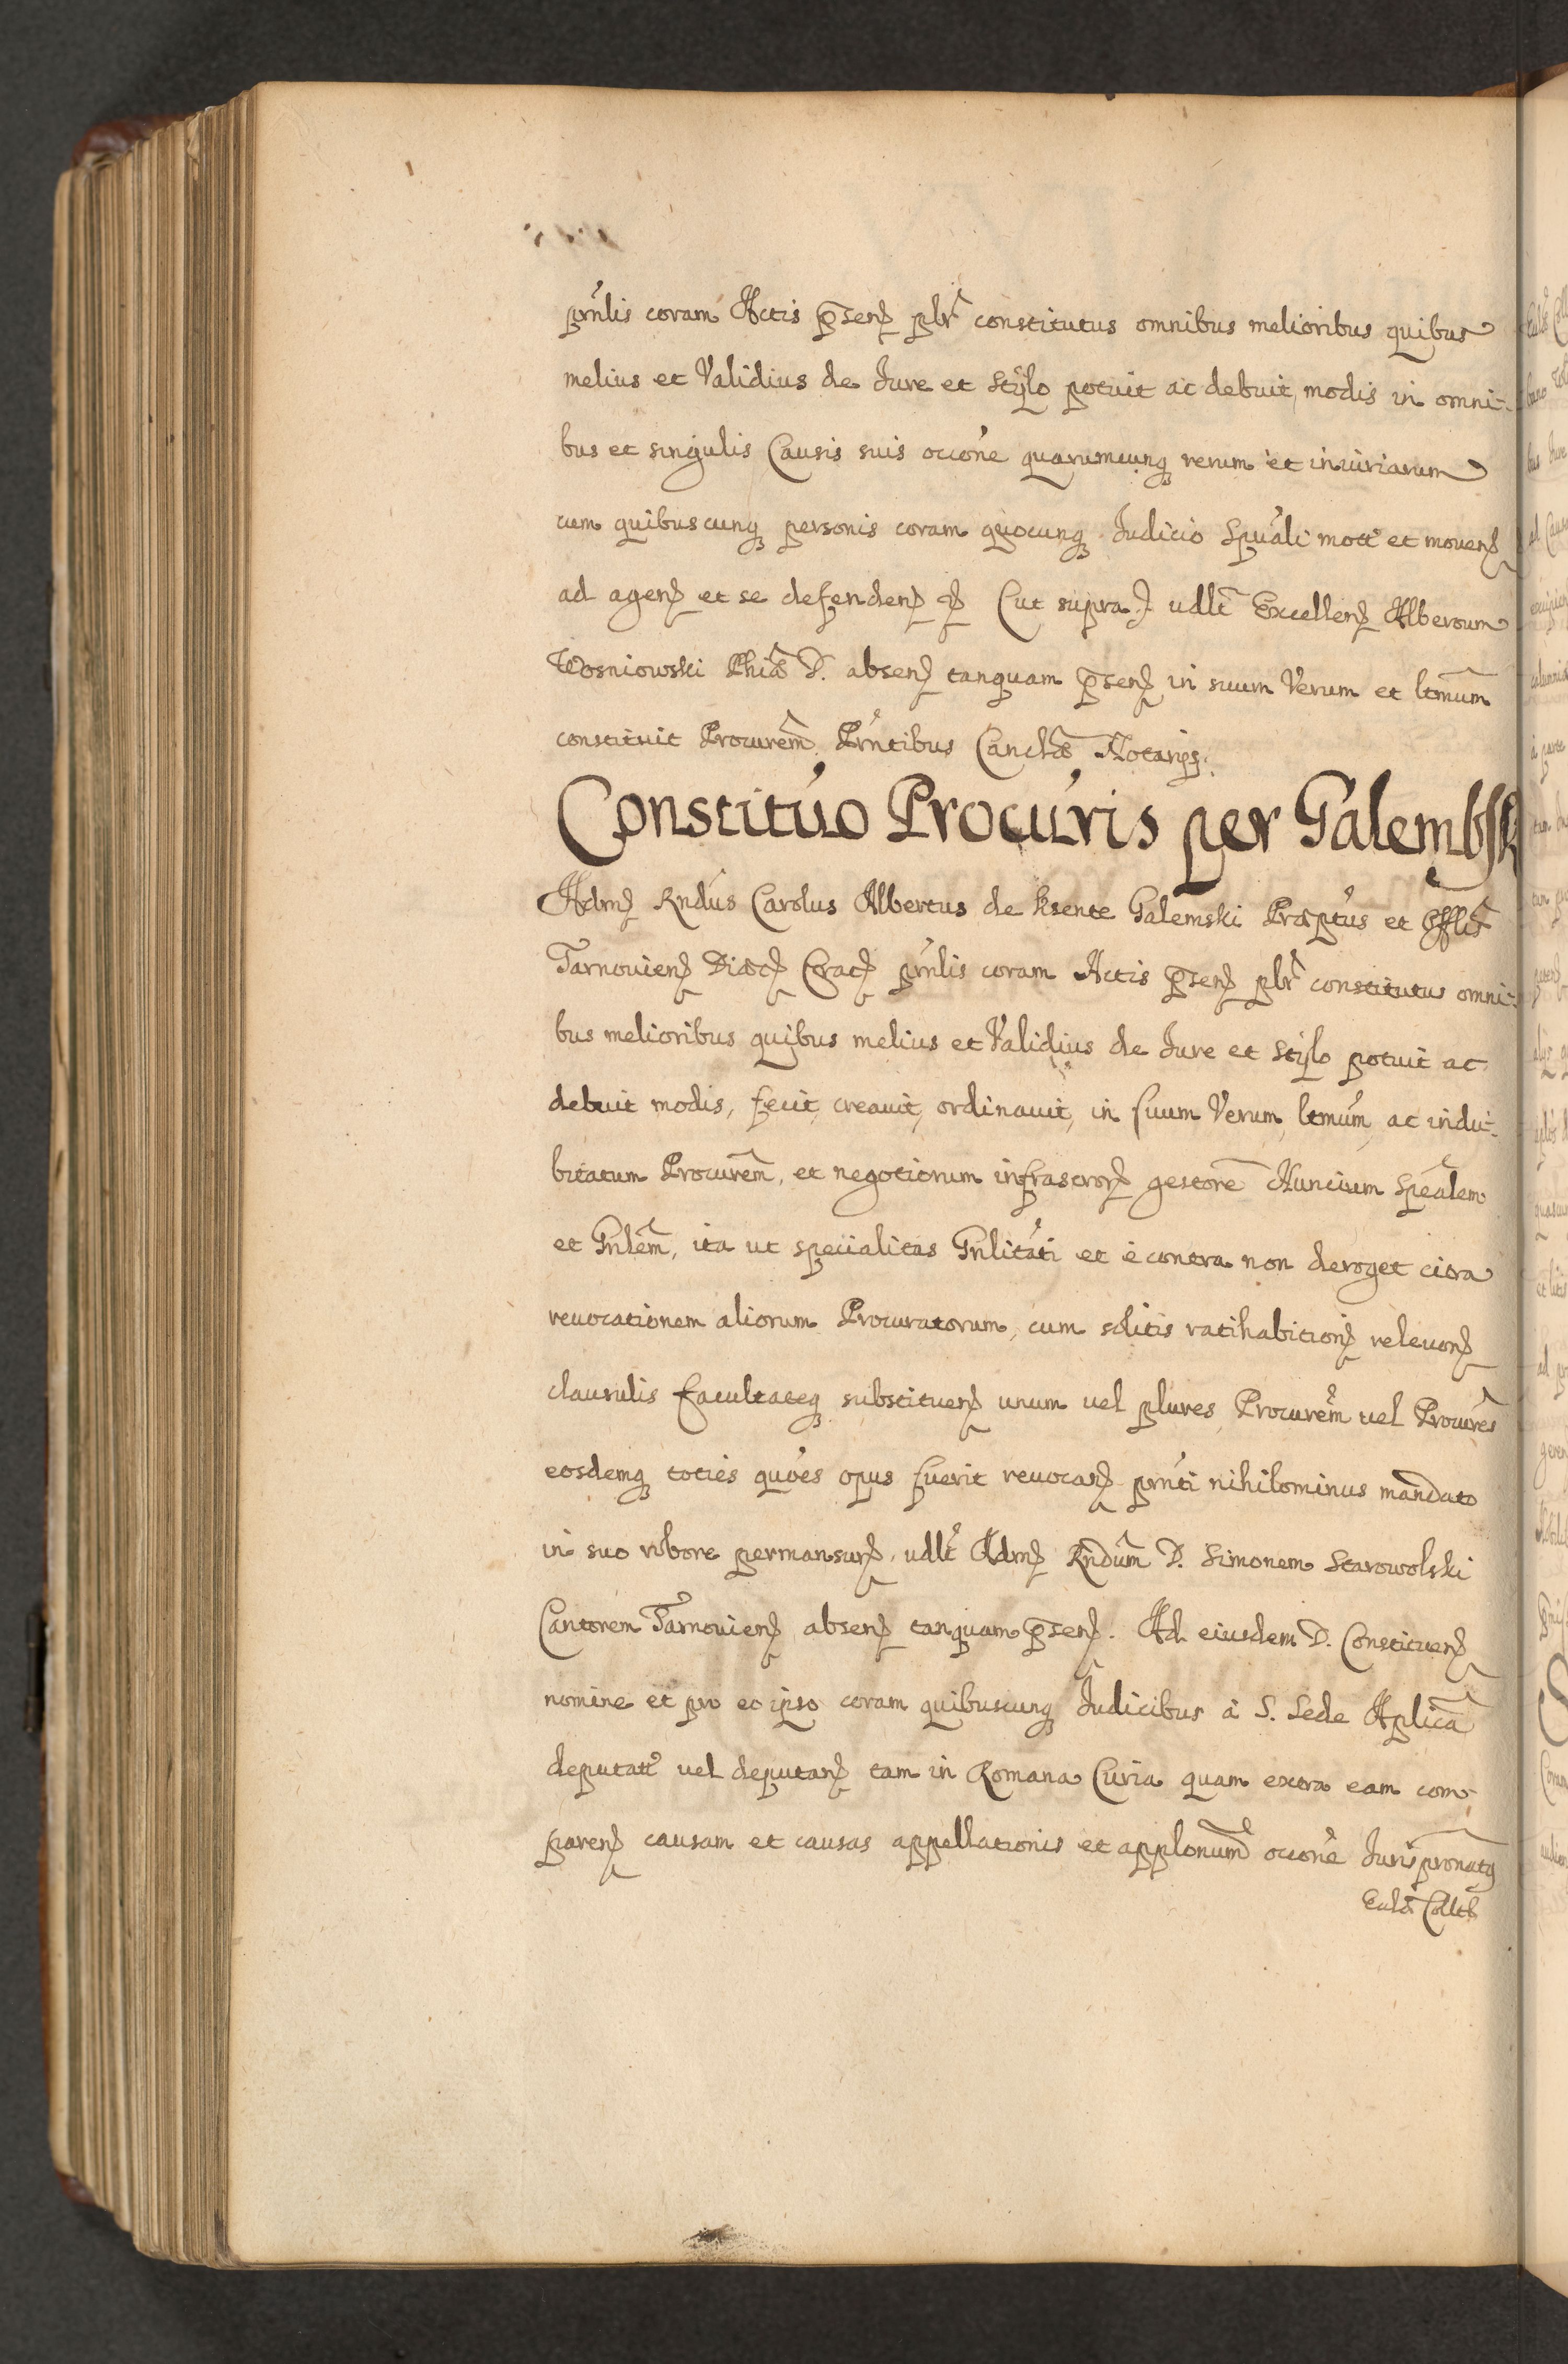 prnlis coram Actis pnsen plr constitutus omnibus melioribus quibus
melius et Validius de Jure et Stylo potuit ac debuit modis in omni-
bus et singulis Causis suis occone quarumcunq rerum et iniuriarum
cum quibuscunq personis coram quocunq Judicio Spuali mott et mouen
ad agen et se defenden (ut supra) udlt Excellen Albertum
Wosniowski Phiæ D. absen tanquam pnsen in suum Verum et ltmum
constituit Procurem. Prntibus Canclæ Notarijs.
Constituo Procuris per Galembsk
Admn Rndus Carolus Albertus de Ksente Galemski Præptus et Offlis
Tarnouien Diæc Crac prnlis coram Actis pnsen plr constitutus omni-
bus melioribus quibus melius et Validius de Jure et Stylo potuit ac
debuit modis, fecit, creauit, ordinauit, in suum Verum, ltmum, ac indu-
bitatum Procurem, et negotiorum infrascror gestore Nuncium Spealem
et Gnlem, ita ut specialitas Gnlitati et è contra non deroget citra
reuocationem aliorum Procuratorum, cum solitis ratihabition releuon
clausulis facultateq substituen unum uel plures Procurem uel Procures
eosdemq toties quoes opus fuerit reuocan prnti nihilominus mandato
in suo robore permansur, udlt Admn Rndum D. Simonem Starowolski
Cantorem Tarnouien absen tanquam pnsen. Ad eiusdem D. Constituen
nomine et pro eo ipso coram quibuscunq Judicibus à S. Sede Aplica
deputatt uel deputan tam in Romana Curia quam extra eam com-
paren causam et causas appellationis et applonum occone Jurispronatq